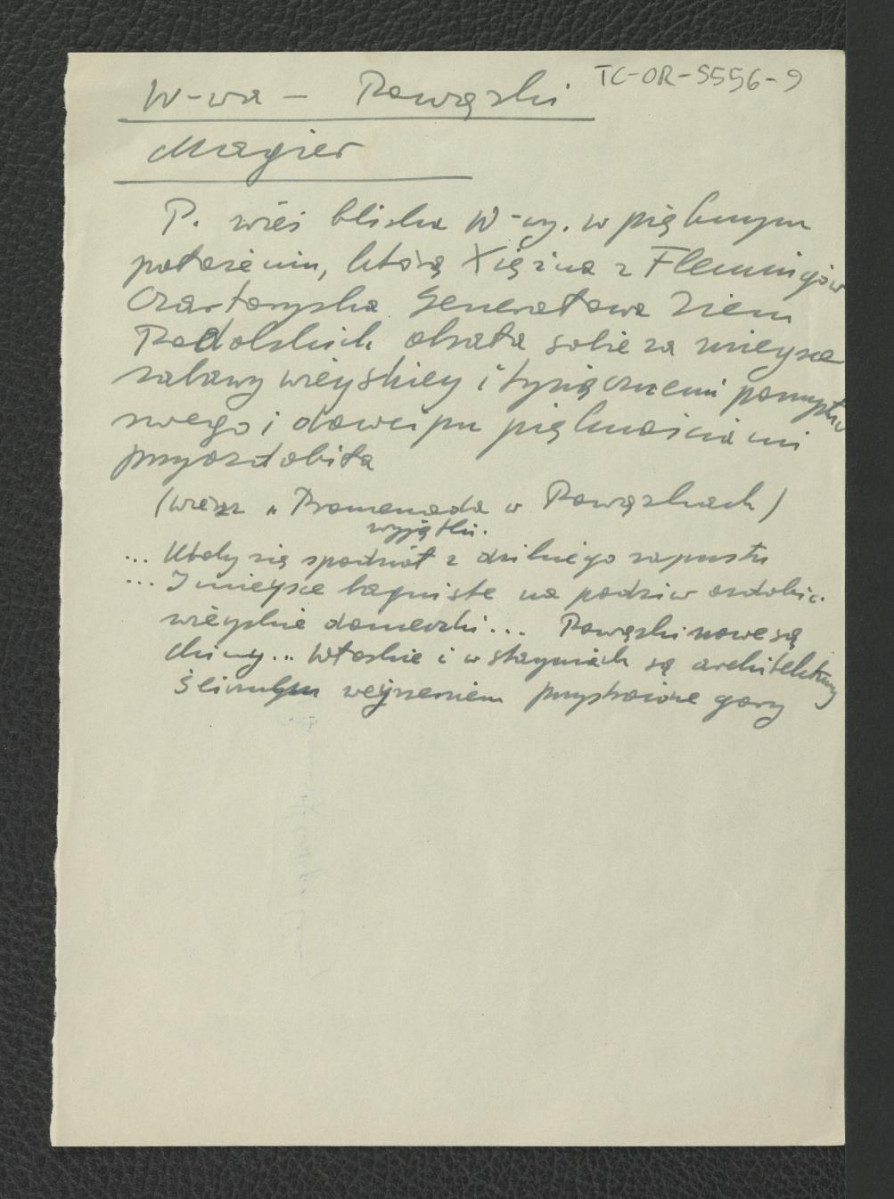 TC-OR-S556-9
W-wa – Powązki
Magier
P. wieś bliska W-wy. w pięknym
położeniu, którą Xiężna z Flemingów
Czartoryska Generałowa Ziem
Podolskich obrała sobie za mieysce
zabawy wieyskiey i tysiącznemi pomysłu
swego i dowcipu pięknościami
przyozdobiła
(wiersz "Promenada w Powązkach)
wyjątki.
... Któby się spodział z dzikiego zapustu
... I mieysce bagniste na podziw ozdobić.
wieyskie domeczki... Powązki nowe są
chiny... Włoskie i w stayniach są architektury
Ślicznym weyzrzeniem przystroione gory